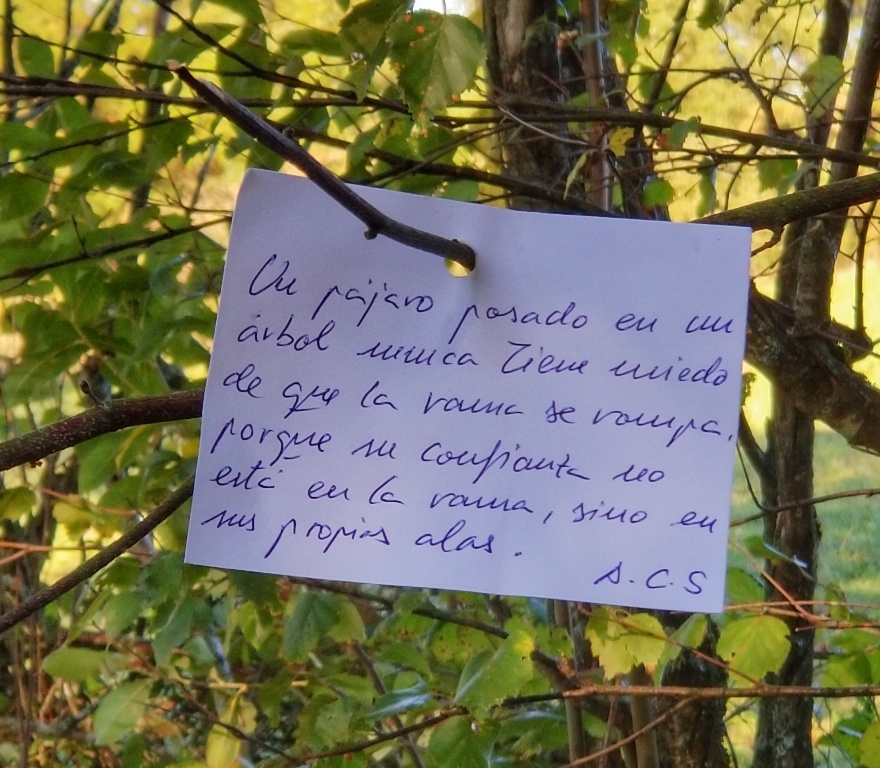 Un pájaro posado en un
árbol nunca tiene miedo
de que la rama se rompa,
porque su confianza no
está en la rama, sino en
sus propias alas.
A.C.S